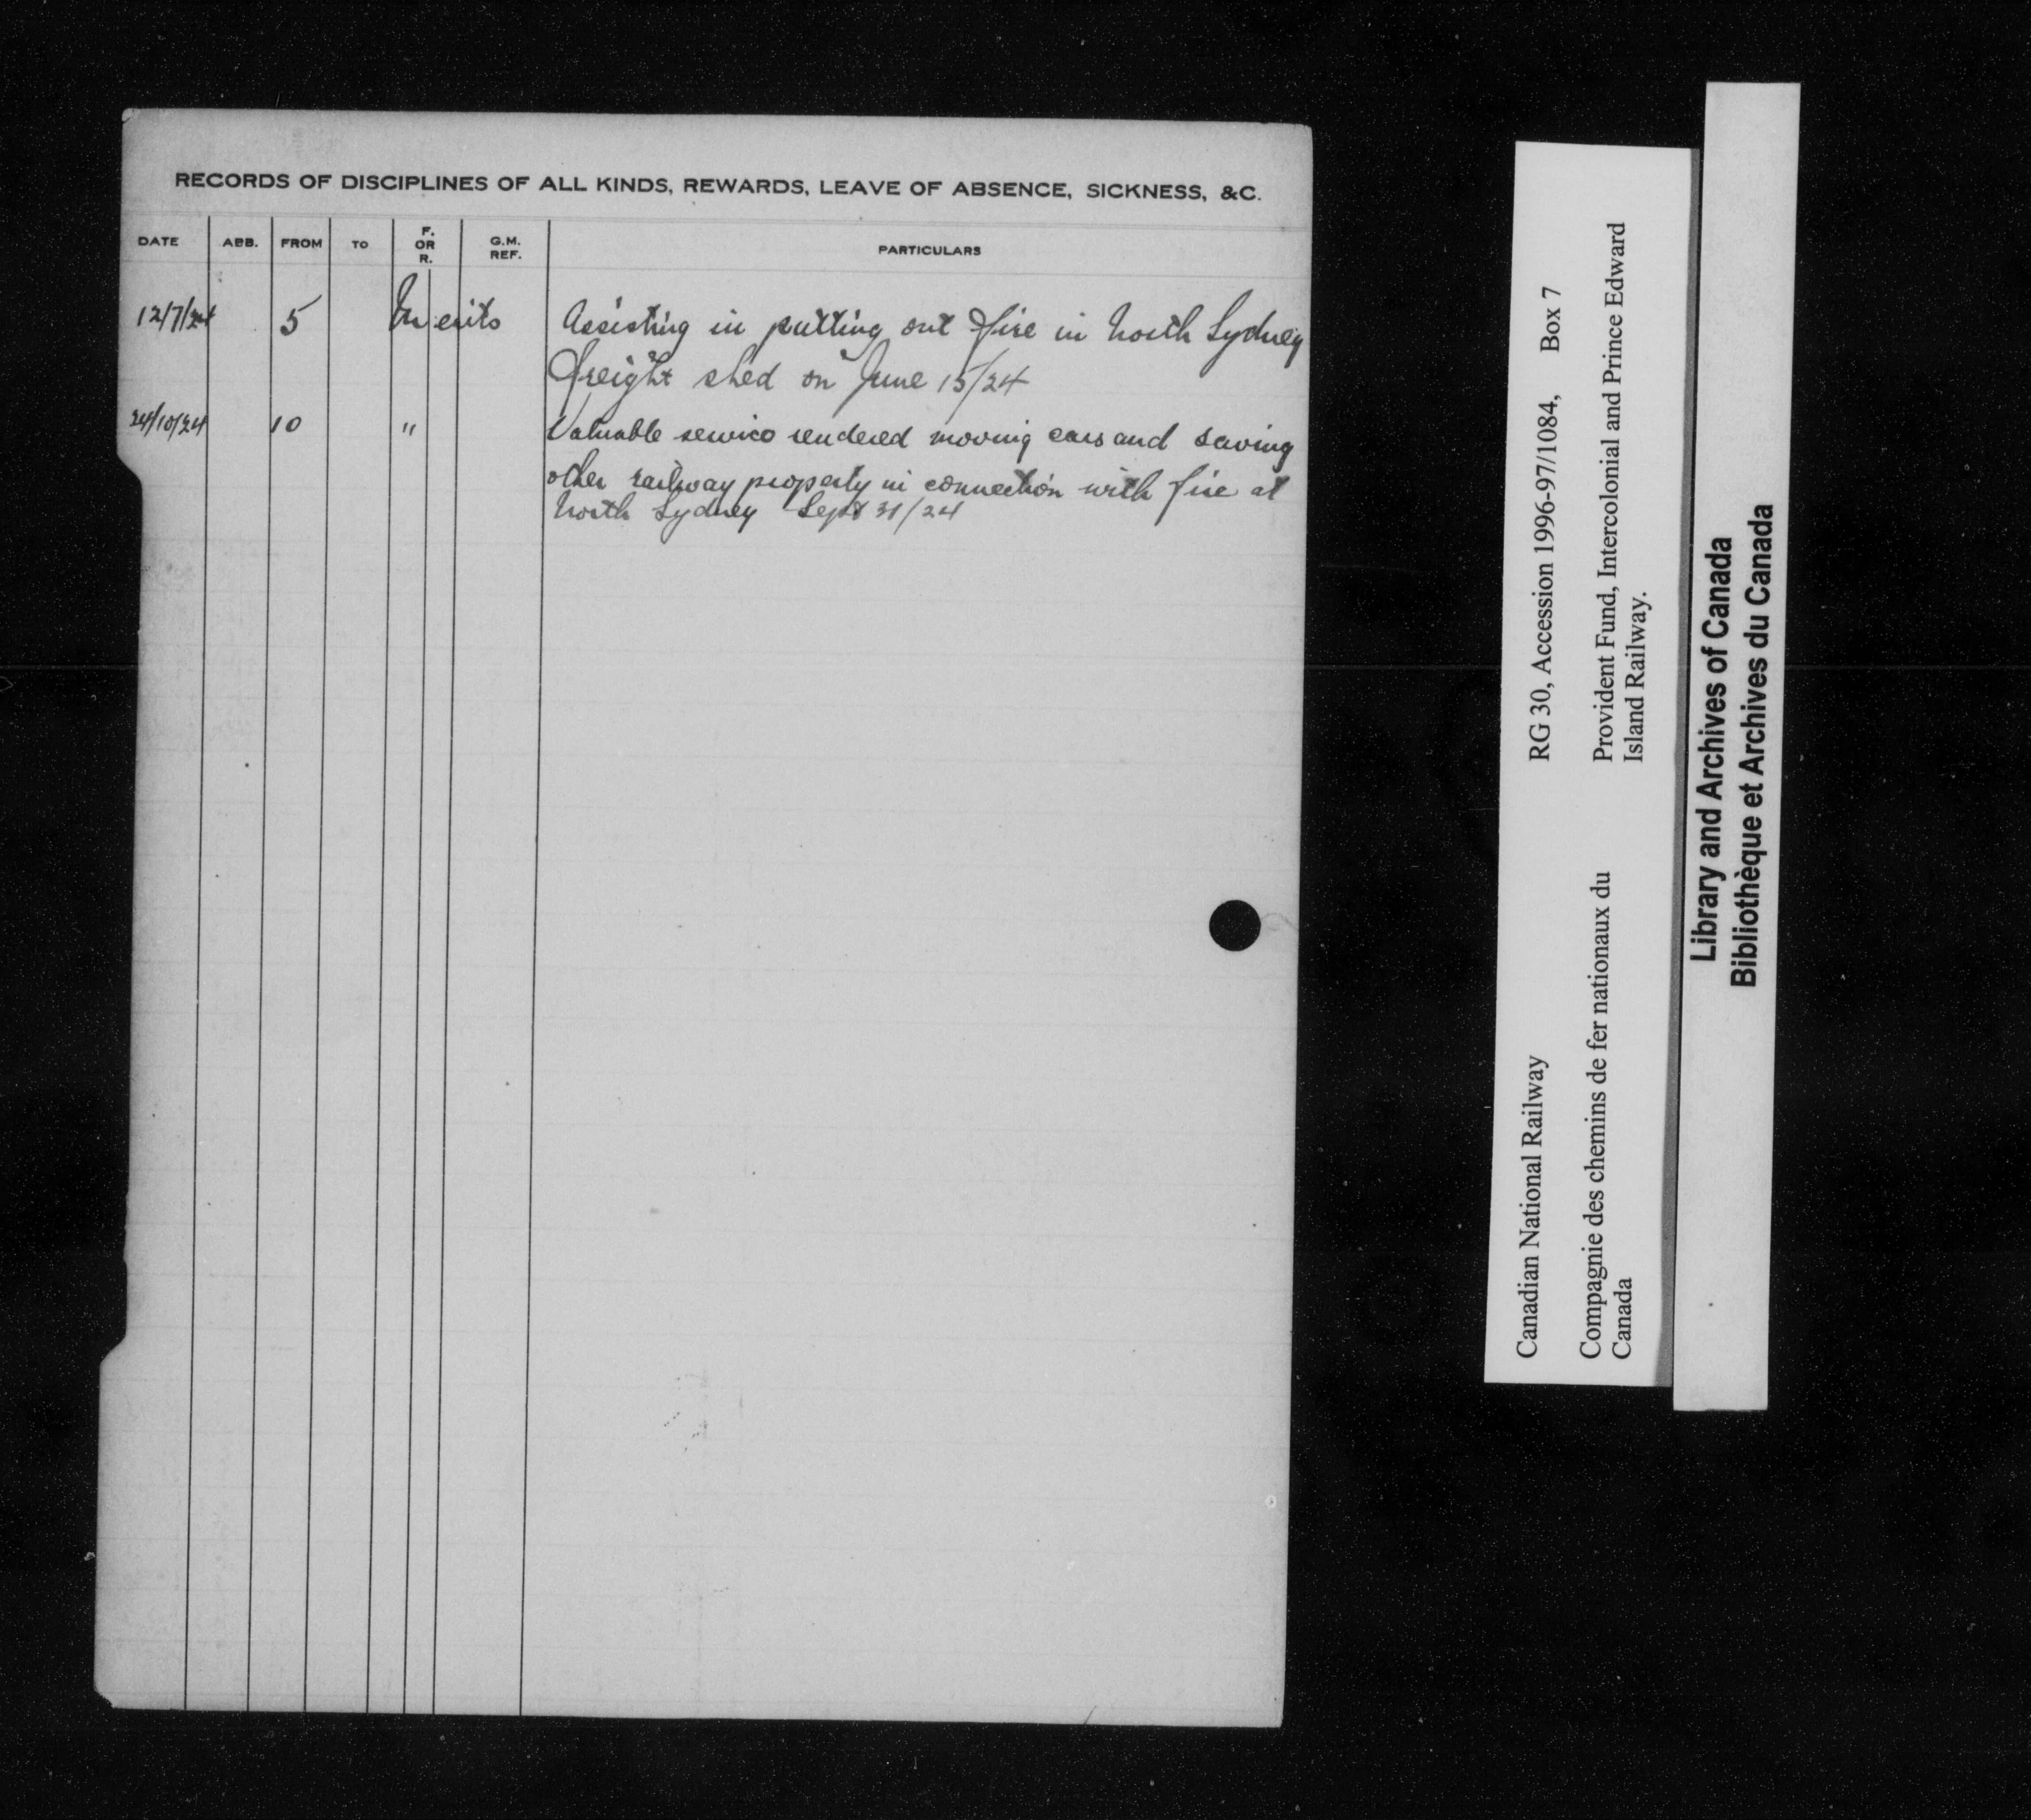 RECORDS OF DISCIPLINES OF ALL KINDS, REWARDS, LEAVE OF ABSENCE, SICKNESS, &C.
DATE ABB. FROM TO F. OR R. G.M. REF. PARTICULARS
12/7/24 5 Merits Assisting in putting out fire in North Sydney
freight shed on June 15/24
24/10/24 10 " Valuable service rendered moving cars and saving
other railway property in connection with fire at
North Sydney Sept /24
Canadian National Railway RG 30, Accession 1996-97/1084, Box 7
Compagnie des chemins de fer nationaux du
Canada
Provident Fund, Intercolonial and Prince Edward
Island Railway.
Library and Archives of Canada
Bibliothèque et Archives du Canada